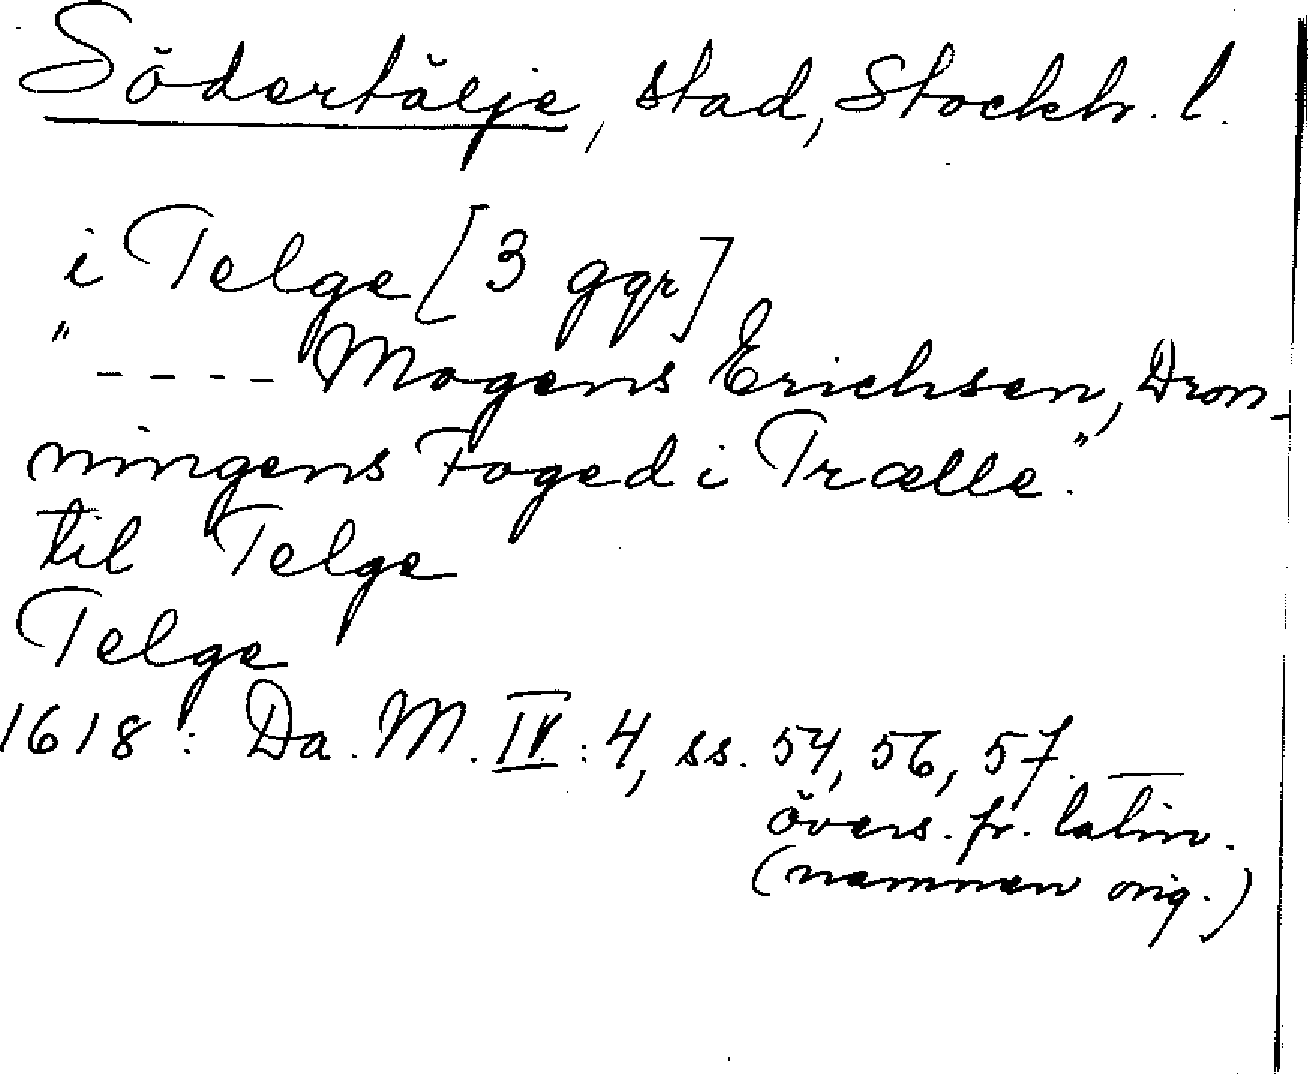 Södertälje, stad, Stockh. l.
i Telge [3 ggr]
" - - - - Mogens Erichsen, Dron-
ningens Foged i Trælle."
til Telge
Telge
1618: Da. M. IV: 4, ss. 54, 56, 57. —
övers. fr. latin.
(namnen orig.)